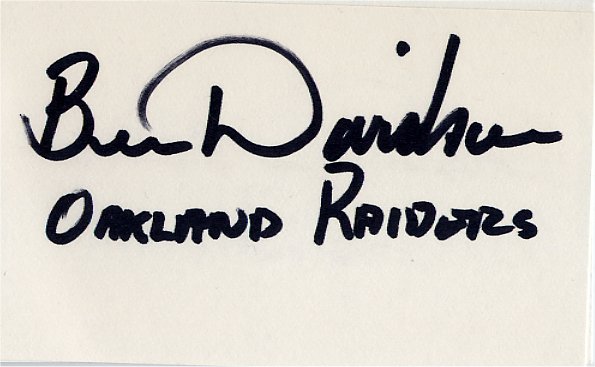 Ben Davidson
OAKLAND RAIDERS